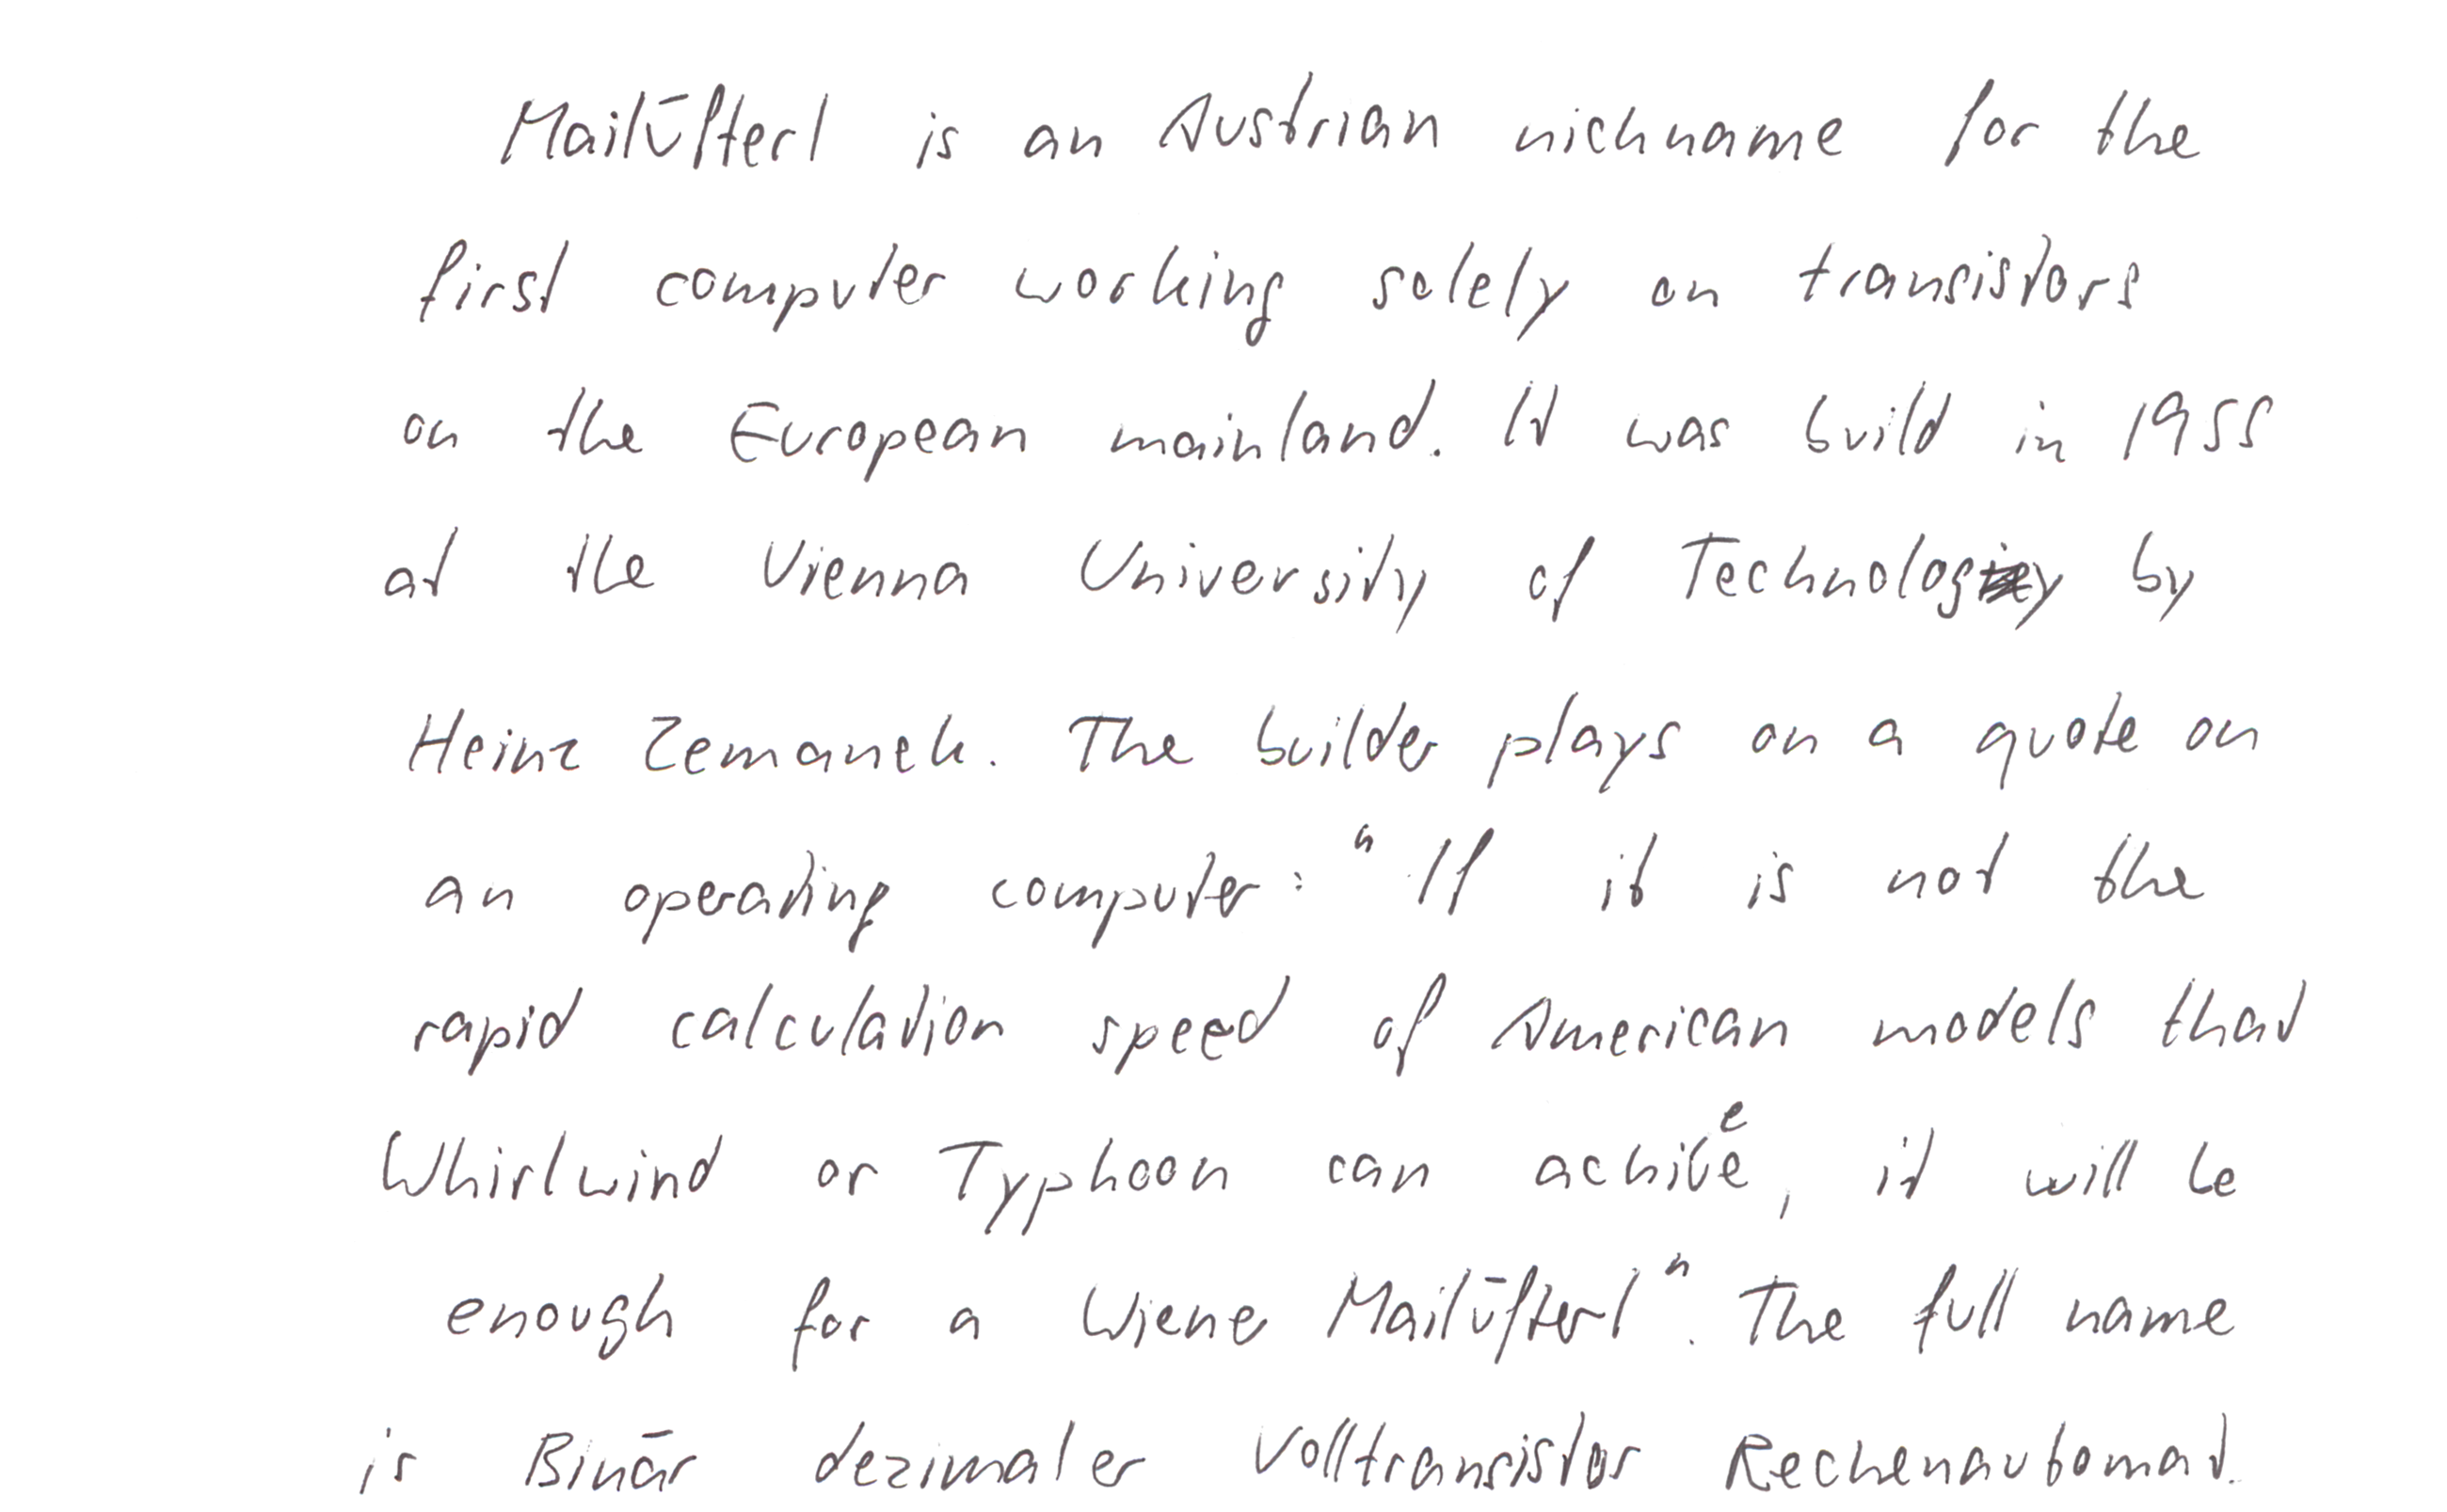 Mailüfterl is an Austrian nickname for the
first computer working solely on transistors
on the European mainland. It was build in 1955
at the Vienna University of Technology by
Heinz Zemanek. The builder plays on a quote on
an operating computer: "If it is not the
rapid calculation speed of American models that
Whirlwind or Typhoon can achieve, it will be
enough for a Wiener Mailüfterl". The full name
is Binär dezimaler Volltransistor Rechenautomat.